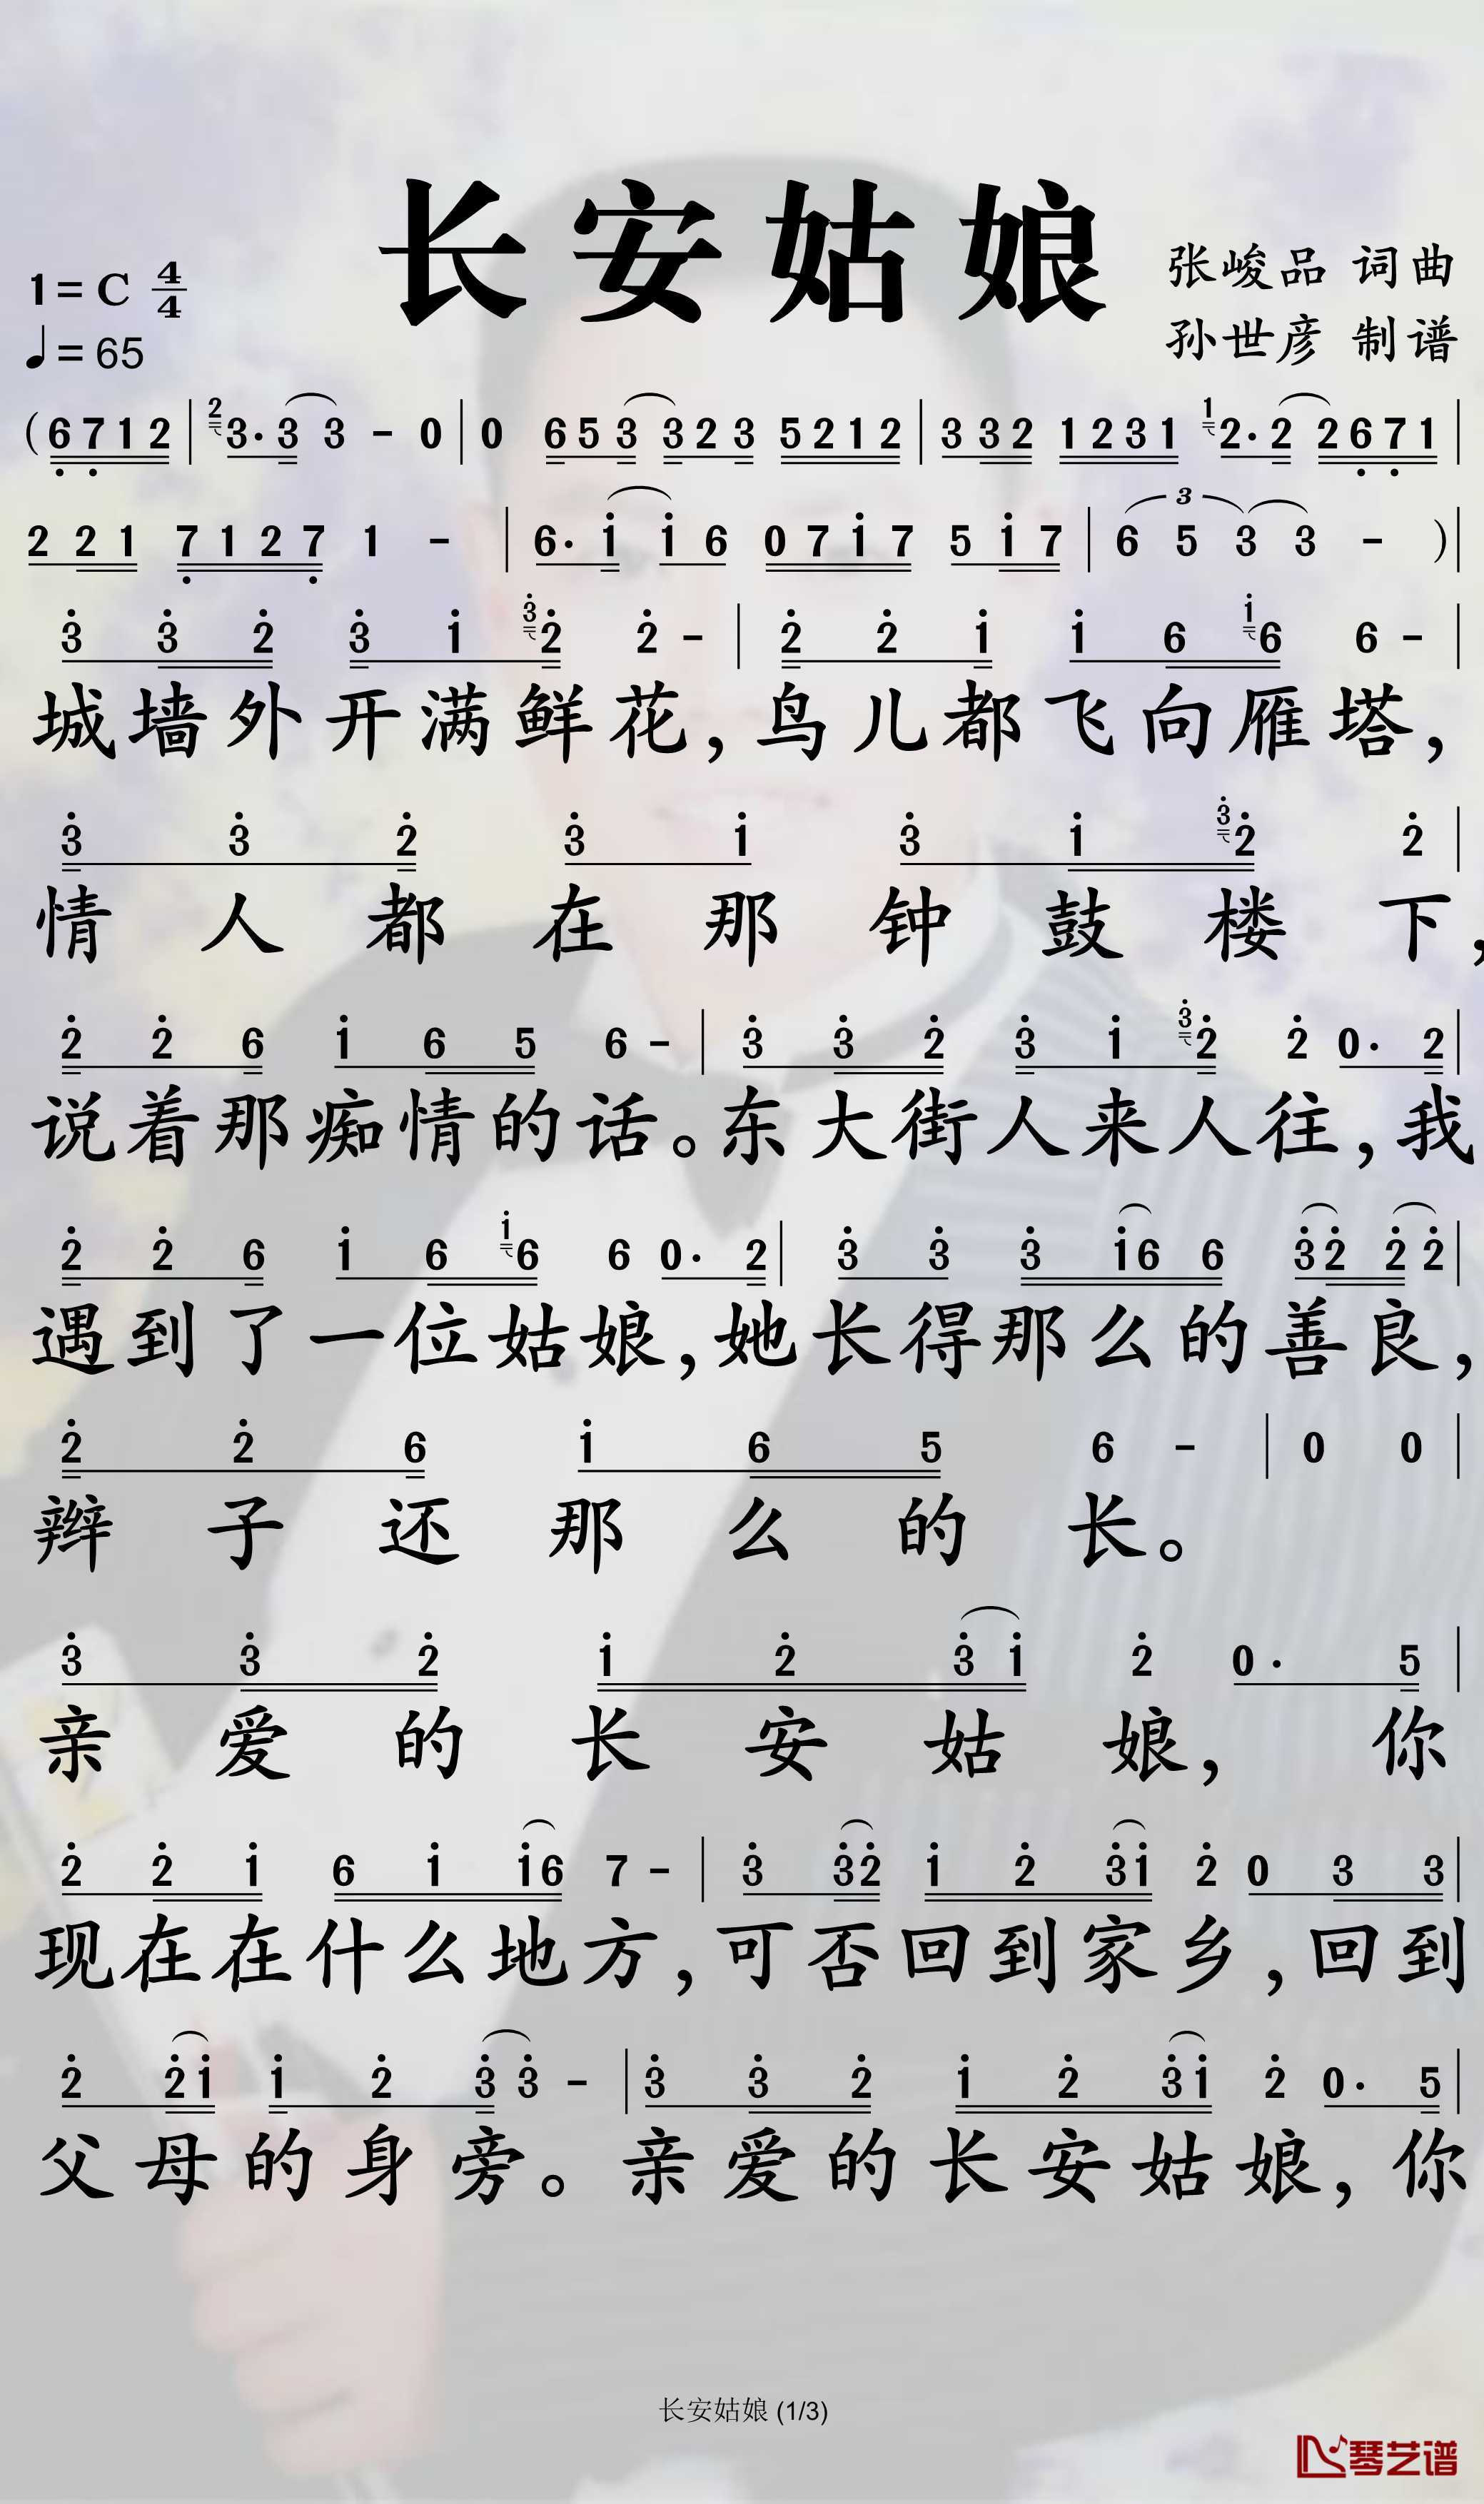 长安姑娘
1=C 4/4
♩=65
张峻品 词曲
孙世彦 制谱
(6̣ 7̣ 1 2 | ²3· 3 3 - 0 | 0 6 5 3 3 2 3 5 2 1 2 | 3 3 2 1 2 3 1 ¹2· 2 2 6̣ 7̣ 1 |
2 2 1 7̣ 1 2 7̣ 1 - | 6· i i 6 0 7 i 7 5 i 7 | 6 5 3 3 - ) |
3̇ 3̇ 2̇ 3̇ i ³2̇ 2̇ - | 2̇ 2̇ i i 6 ⁱ6 6 - |
城墙外开满鲜花，鸟儿都飞向雁塔，
3̇ 3̇ 2̇ 3̇ i 3̇ i ³2̇ 2̇ |
情人都在那钟鼓楼下，
2̇ 2̇ 6 i 6 5 6 - | 3̇ 3̇ 2̇ 3̇ i ³2̇ 2̇ 0· 2̇ |
说着那痴情的话。东大街人来人往，我
2̇ 2̇ 6 i 6 ⁱ6 6 0· 2̇ | 3̇ 3̇ 3̇ i 6 6 3̇ 2̇ 2̇ 2̇ |
遇到了一位姑娘，她长得那么的善良，
2̇ 2̇ 6 i 6 5 6 - | 0 0 |
辫子还那么的长。
3̇ 3̇ 2̇ i 2̇ 3̇ i 2̇ 0· 5 |
亲爱的长安姑娘，你
2̇ 2̇ i 6 i i 6 7 - | 3̇ 3̇ 2̇ i 2̇ 3̇ i 2̇ 0 3 3 |
现在在什么地方，可否回到家乡，回到
2̇ 2̇ i i 2̇ 3̇ 3̇ - | 3̇ 3̇ 2̇ i 2̇ 3̇ i 2̇ 0· 5 |
父母的身旁。亲爱的长安姑娘，你
长安姑娘 (1/3)
琴艺谱